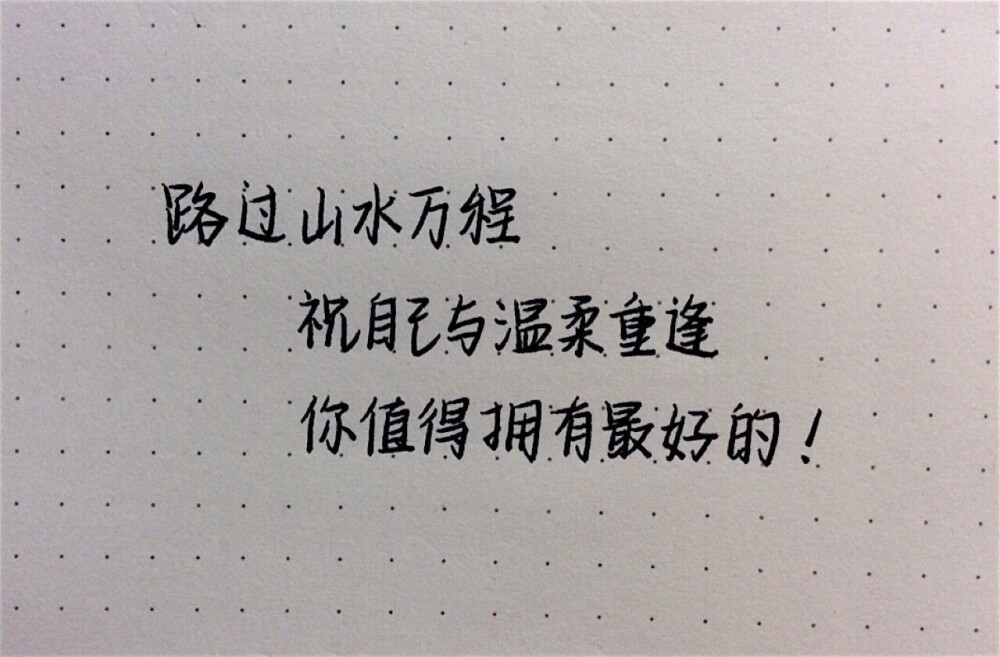 路过山水万程
祝自己与温柔重逢
你值得拥有最好的！